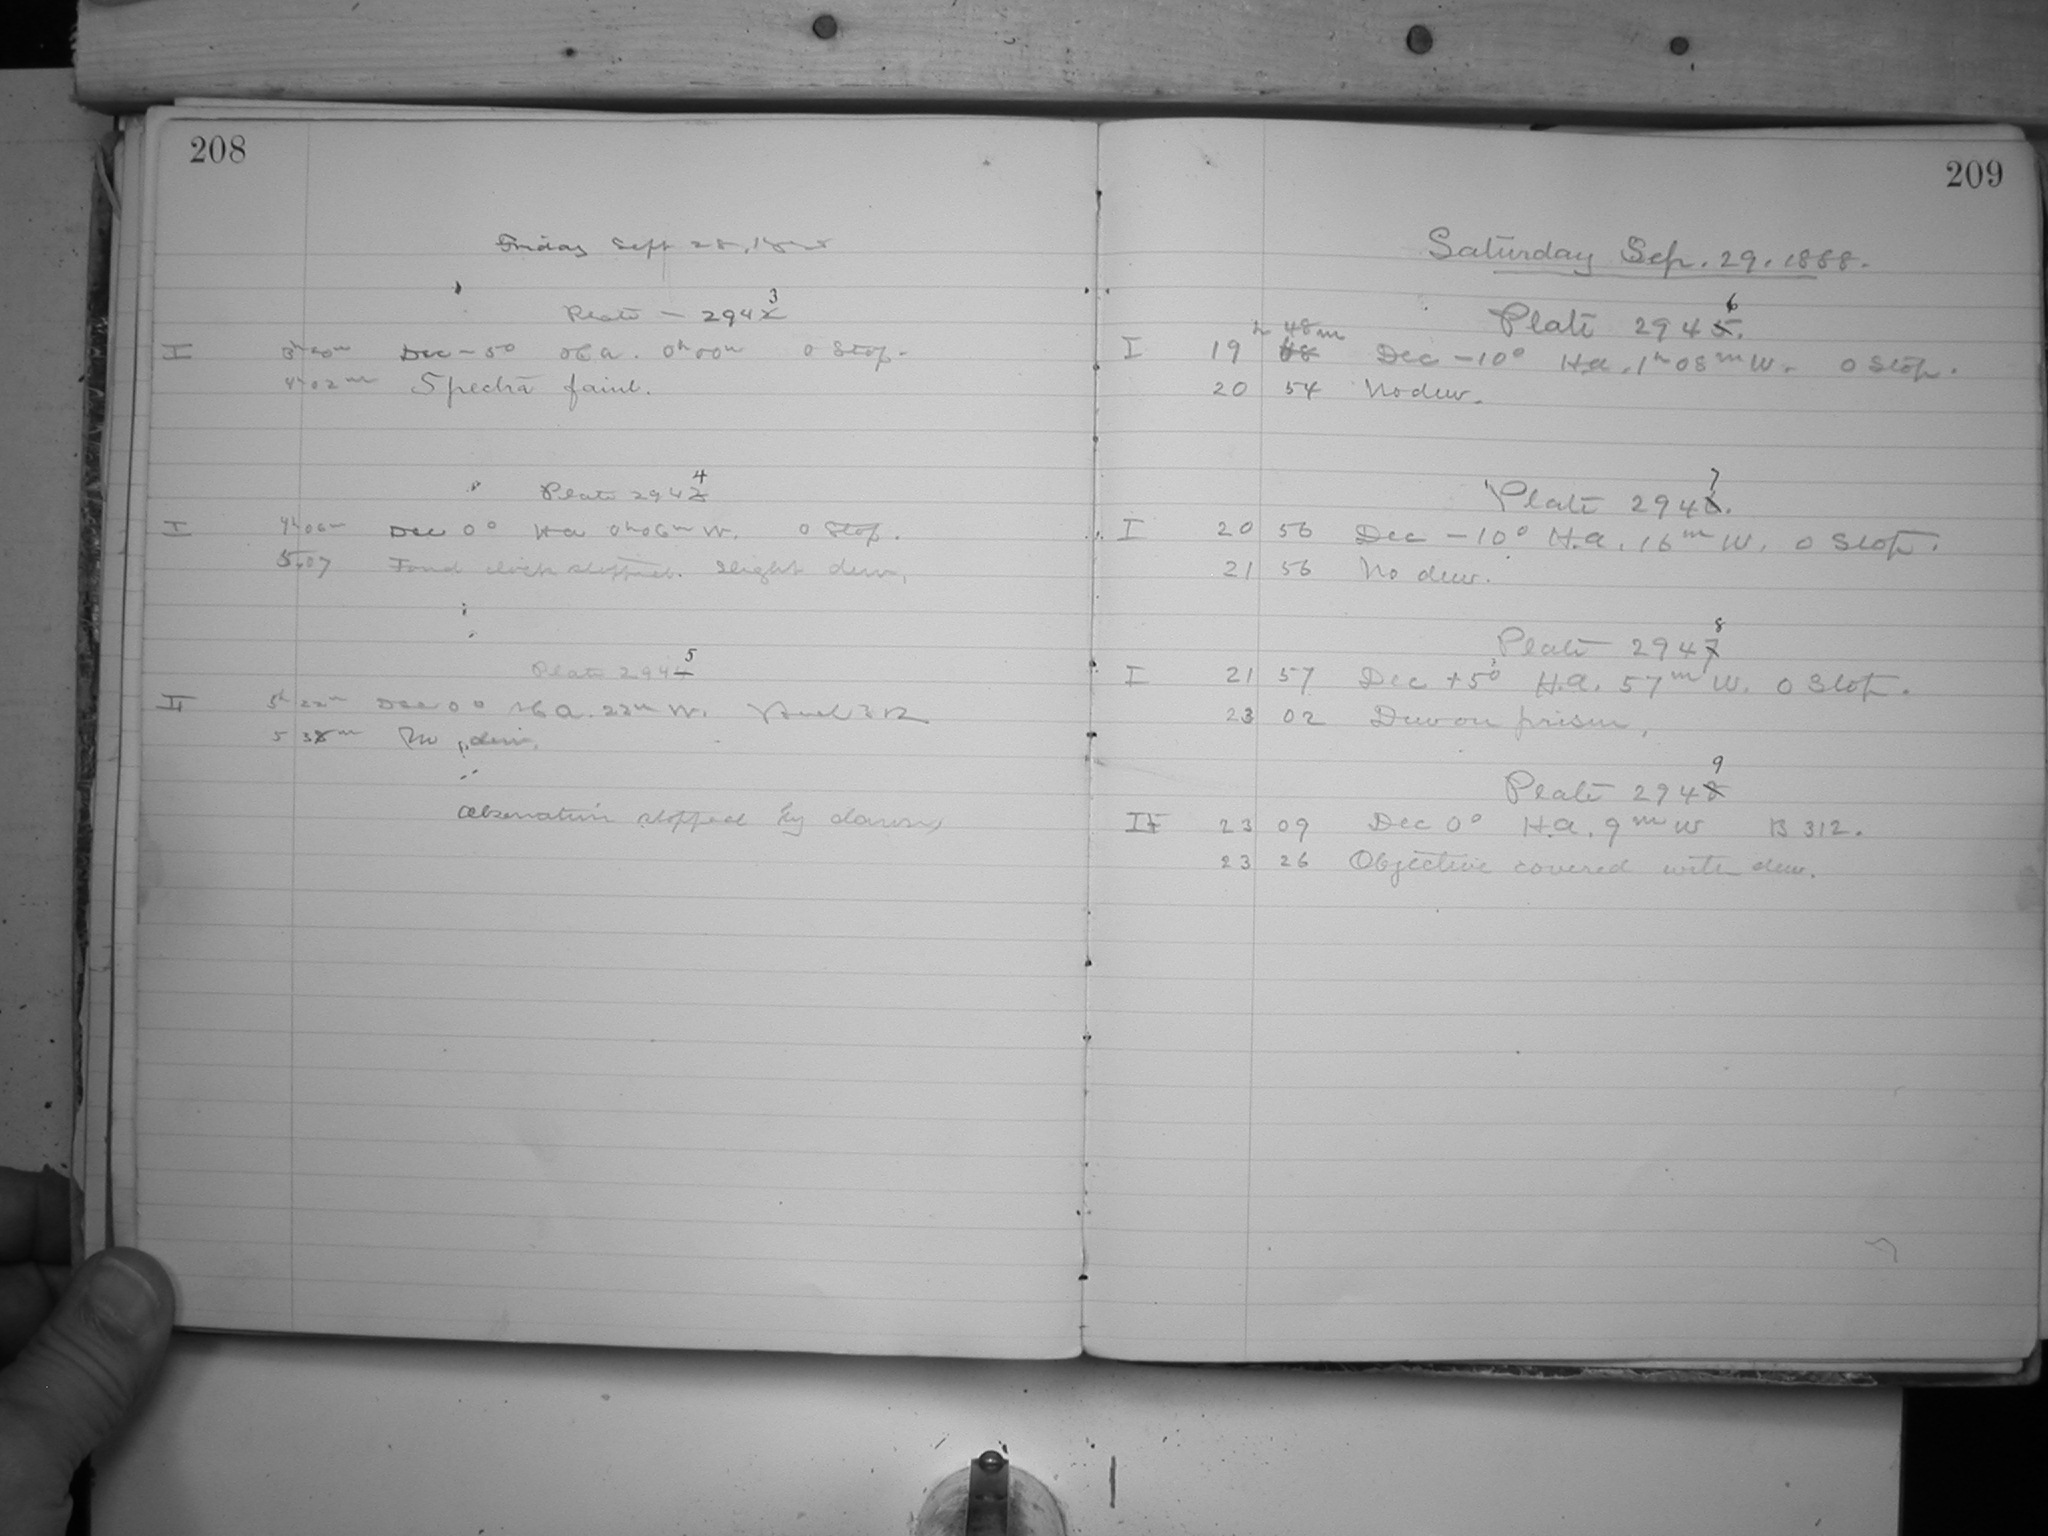 208
Friday Sept 28, 1888
3
Plate - 2942
I 3h 00m Dec - 5° H a. 0h 00m 0 Stop.
4h 02m Spectra faint.
4
Plate 2943
I 4h 06m Dec 0° H a 0h 06m W. 0 Stop.
5.07 Found clock stopped. Slight dew.
5
Plate 2944
II 5h 22m Dec 0° H a. 22m W. 312
5 38m No dew.
Observation stopped by dawn,
209
Saturday Sep. 29. 1888.
6
Plate 2945.
h 48m
I 19 48 Dec -10° H.a. 1h 08m W. 0 Stop.
20 54 No dew.
7
Plate 2946.
I 20 56 Dec -10° H.a. 16m W. 0 Stop.
21 56 No dew.
8
Plate 2947
I 21 57 Dec +5° H.a. 57m W. 0 Stop.
23 02 Dew on prism,
9
Plate 2948
II 23 09 Dec 0° H.a. 9m W B 312.
23 26 Objective covered with dew.